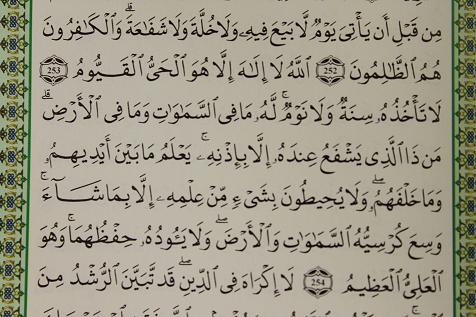 مِن قَبْلِ أَن يَأْتِىَ يَوْمٌ لَّا بَيْعَ فِيهِ وَلَا خُلَّةٌ وَلَا شَفَٰعَةٌ ۗ وَٱلْكَٰفِرُونَ
هُمُ ٱلظَّٰلِمُونَ 252 ٱللَّهُ لَآ إِلَٰهَ إِلَّا هُوَ ٱلْحَىُّ ٱلْقَيُّومُ 253
لَا تَأْخُذُهُۥ سِنَةٌ وَلَا نَوْمٌ ۚ لَّهُۥ مَا فِى ٱلسَّمَٰوَٰتِ وَمَا فِى ٱلْأَرْضِ ۗ
مَن ذَا ٱلَّذِى يَشْفَعُ عِندَهُۥٓ إِلَّا بِإِذْنِهِۦ ۚ يَعْلَمُ مَا بَيْنَ أَيْدِيهِمْ
وَمَا خَلْفَهُمْ ۖ وَلَا يُحِيطُونَ بِشَىْءٍ مِّنْ عِلْمِهِۦٓ إِلَّا بِمَا شَآءَ ۚ
وَسِعَ كُرْسِيُّهُ ٱلسَّمَٰوَٰتِ وَٱلْأَرْضَ ۖ وَلَا يَـُٔودُهُۥ حِفْظُهُمَا ۚ وَهُوَ
ٱلْعَلِىُّ ٱلْعَظِيمُ 254 لَآ إِكْرَاهَ فِى ٱلدِّينِ ۖ قَد تَّبَيَّنَ ٱلرُّشْدُ مِنَ